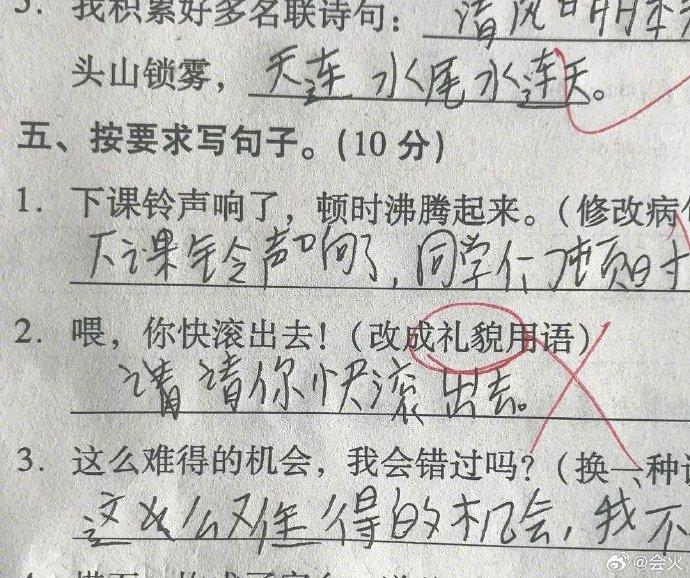 5. 我积累好多名联诗句：清风明月本无
头山锁雾，天连水尾水连天。
五、按要求写句子。(10 分)
1. 下课铃声响了，顿时沸腾起来。(修改病句
下课铃声响了，同学们顿时
2. 喂，你快滚出去！(改成礼貌用语)
请请你快滚出去。
3. 这么难得的机会，我会错过吗？(换一种说
这么难得的机会，我不
@会火